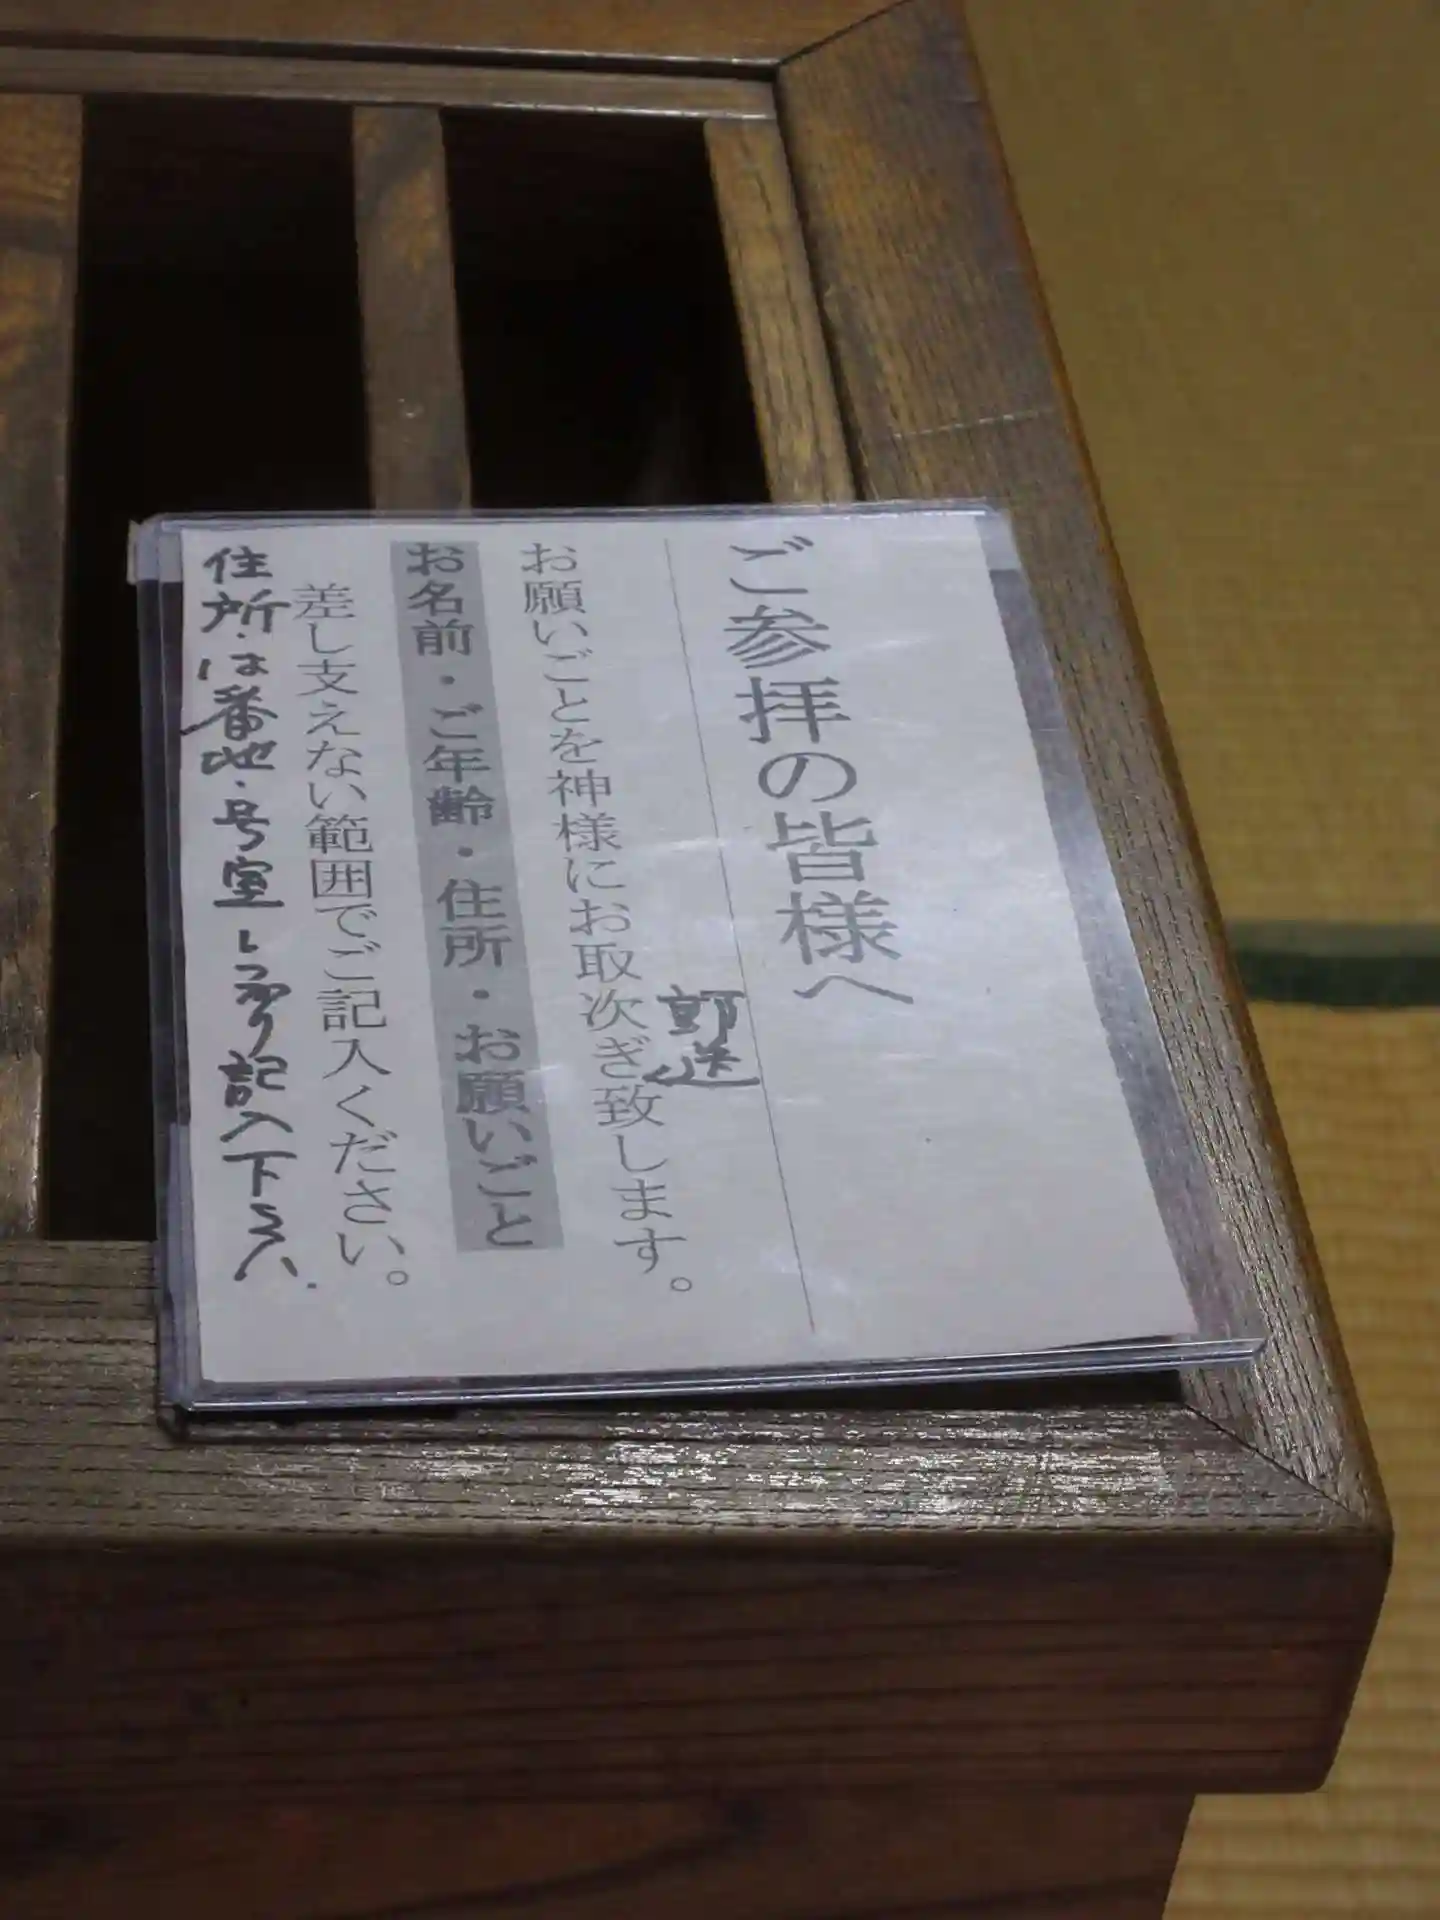 ご参拝の皆様へ
郵送
お願いごとを神様にお取次ぎ致します。
お名前・ご年齢・住所・お願いごと
差し支えない範囲でご記入ください。
住所は番地・号室
記入下さい.